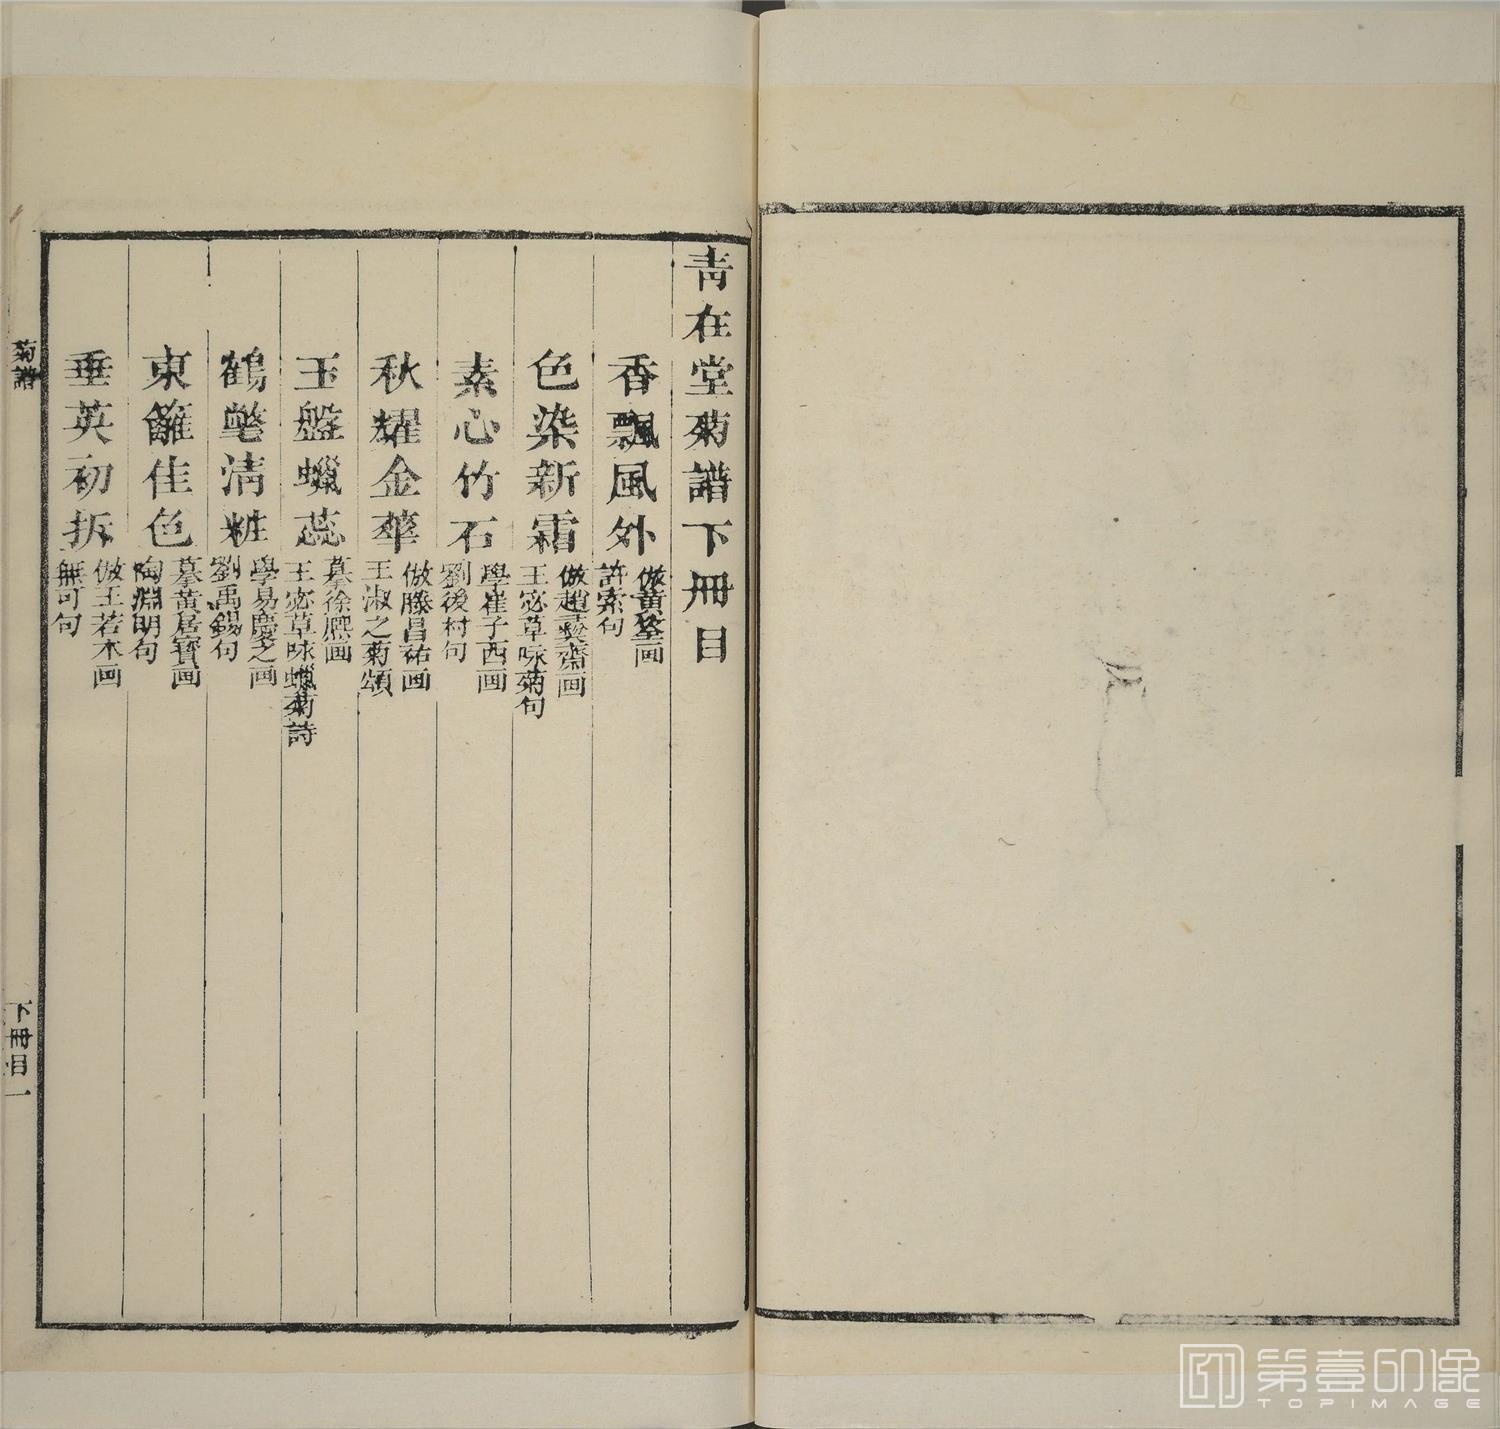 青在堂菊譜下冊目
香飄風外
倣黃筌画
許棠句
色染新霜
倣趙彝齋画
王宓草咏菊句
素心竹石
學崔子西画
劉後村句
秋耀金華
倣滕昌祐画
王淑之菊頌
玉盤蠟蕊
摹徐熈画
王宓草咏蠟菊詩
鶴氅清粧
學易慶之画
劉禹錫句
東籬佳色
摹黃居寶画
陶淵明句
垂英初拆
倣王若水画
無可句
菊譜
下冊目一
第壹印像
TOPIMAGE